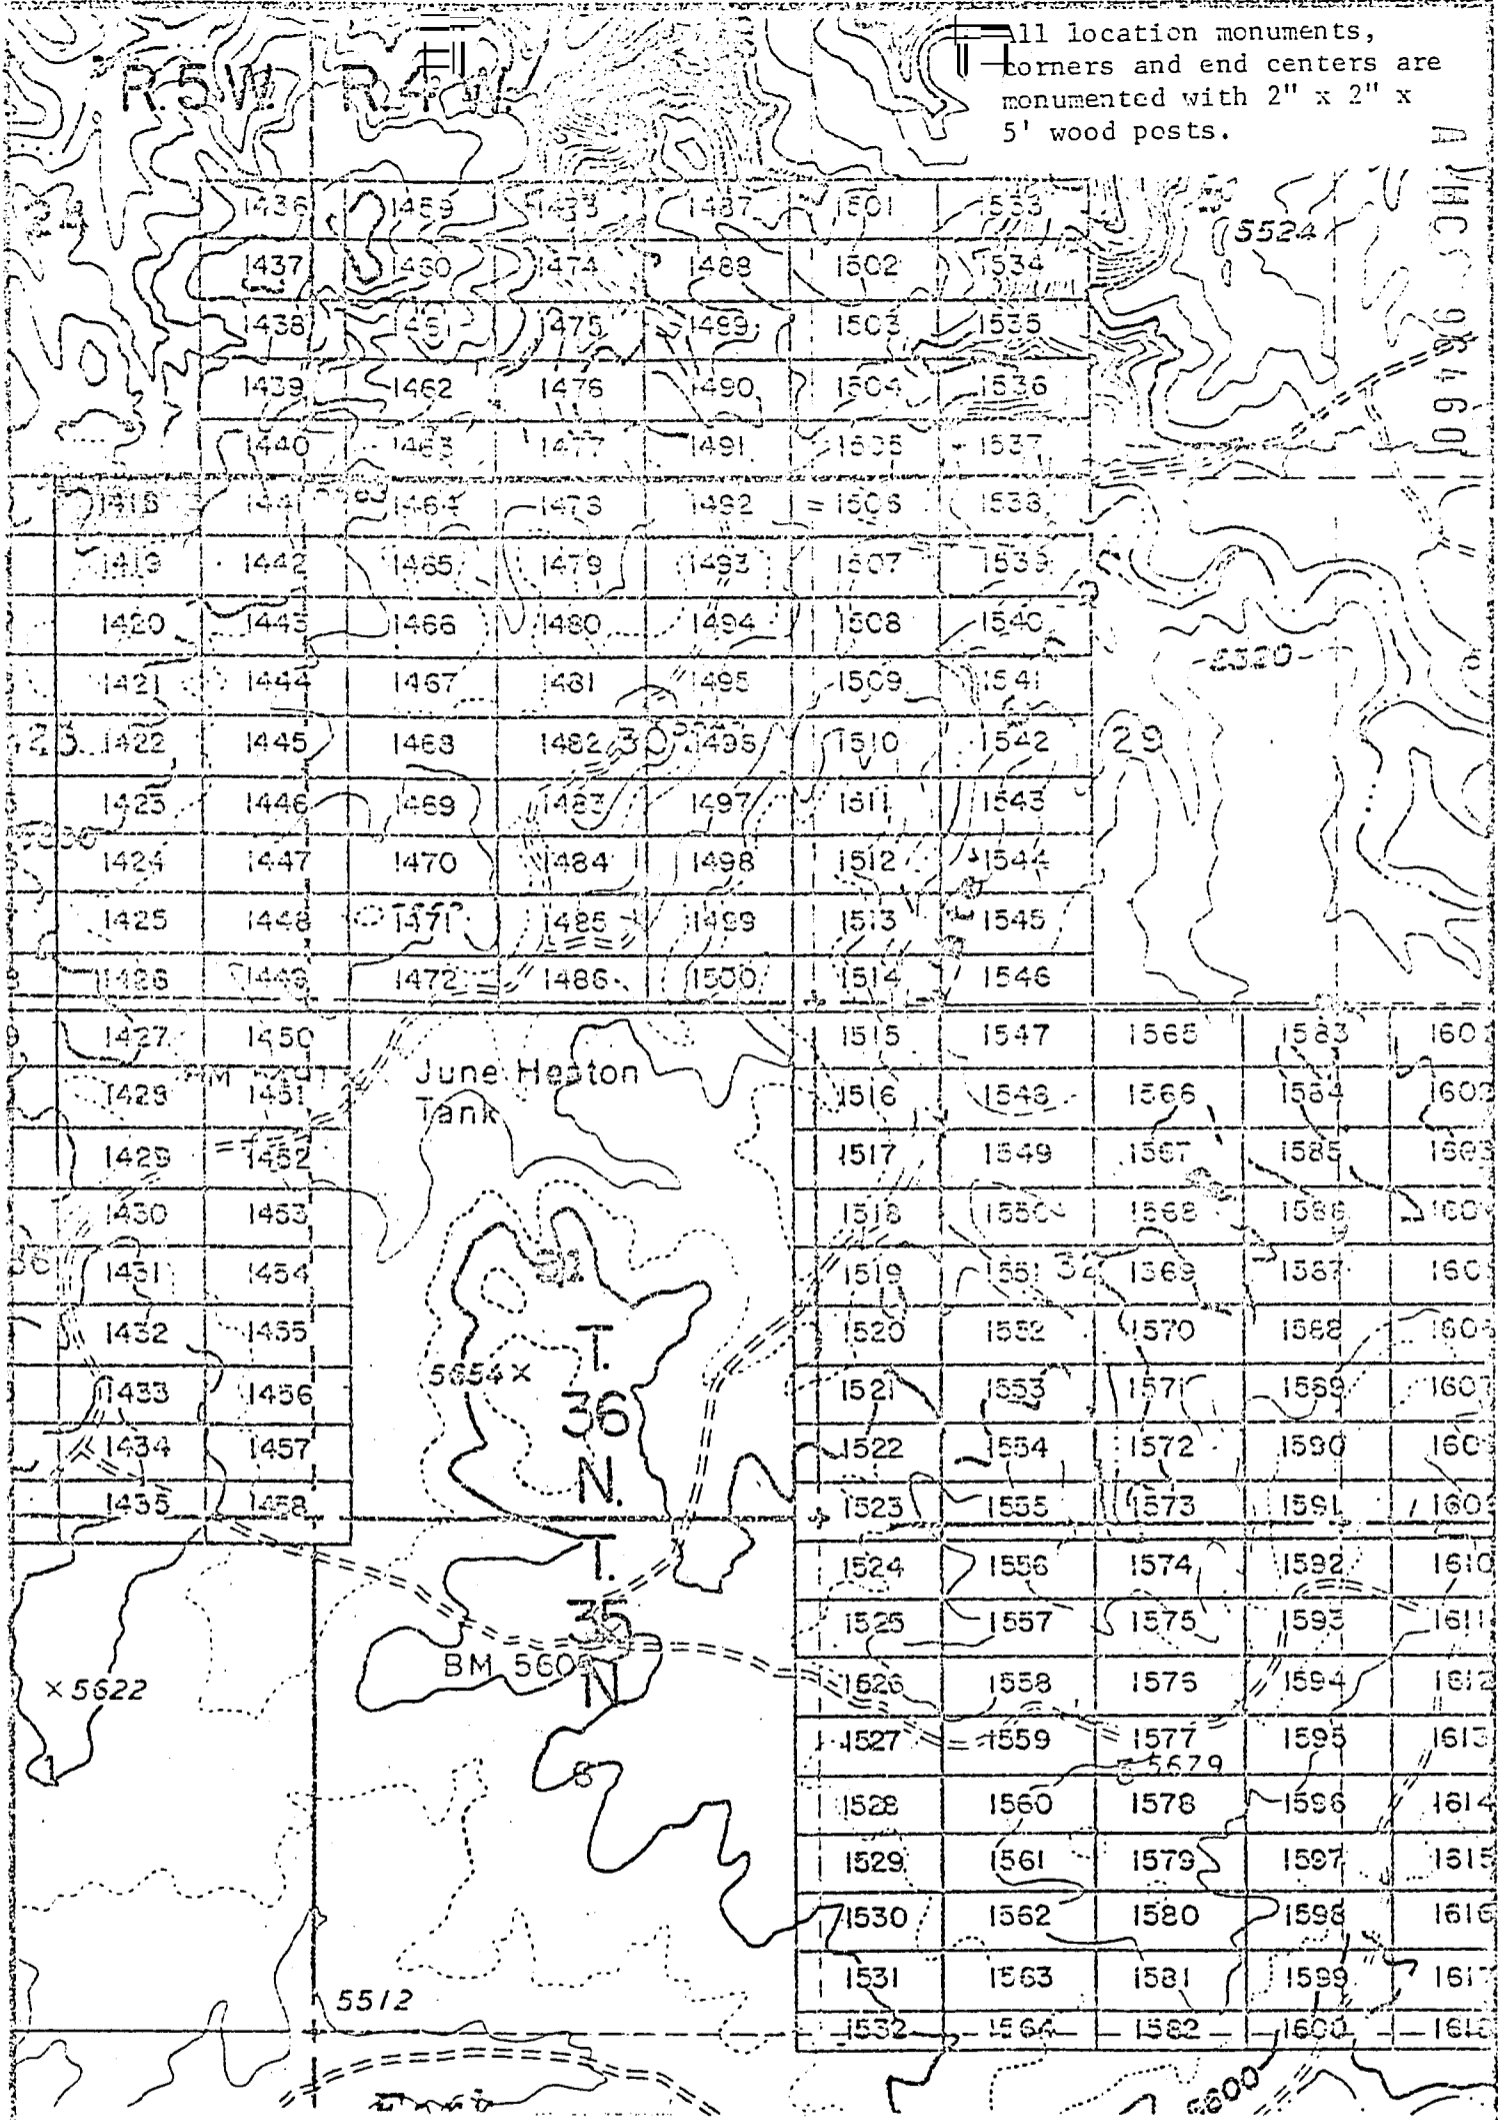 All location monuments,
corners and end centers are
monumented with 2" x 2" x
5' wood posts.
R.5W. R.4W.
1436 1459 1487 1501
5524
1437 1460 1474 1488 1502 1534
1438 1475 1489 1503 1535
1439 1462 1476 1490 1504 1536
1440 1463 1477 1491 1505 1537
1464 1492 1506 1538
1419 1442 1465 1479 1493 1507 1539
1420 1443 1466 1480 1494 1508 1540
1421 1444 1467 1481 1495 1509 1541
1422 1445 1468 1482 30 1496 1510 1542 29
1423 1446 1469 1483 1497 1511 1543
1424 1447 1470 1484 1498 1512 1544
1425 1448 1471 1485 1499 1513 1545
1426 1449 1472 1486 1500 1514 1546
1427 1450 1515 1547 1565 1583
June Heaton
Tank
1429 1451 1516 1548 1566 1584
1429 1452 1517 1549 1567 1585
1430 1453 1518 1550 1568 1586
1431 1454 31 1519 1551 32 1569 1587
1432 1455 1520 1552 1570 1588
T.
36
N.
5654
1433 1456 1521 1553 1571 1589
1434 1457 1522 1554 1572 1590
1435 1458 1523 1555 1573 1591
T.
35
N
1524 1556 1574 1592 1610
1525 1557 1575 1593 1611
BM 560
×5622
1526 1558 1576 1594 1612
1527 1559 1577 1595 1613
5679
1
6
1528 1560 1578 1596 1614
1529 1561 1579 1597 1615
1530 1562 1580 1598 1616
1531 1563 1581 1599 1617
5512
1532 1564 1582 1600 1618
5600